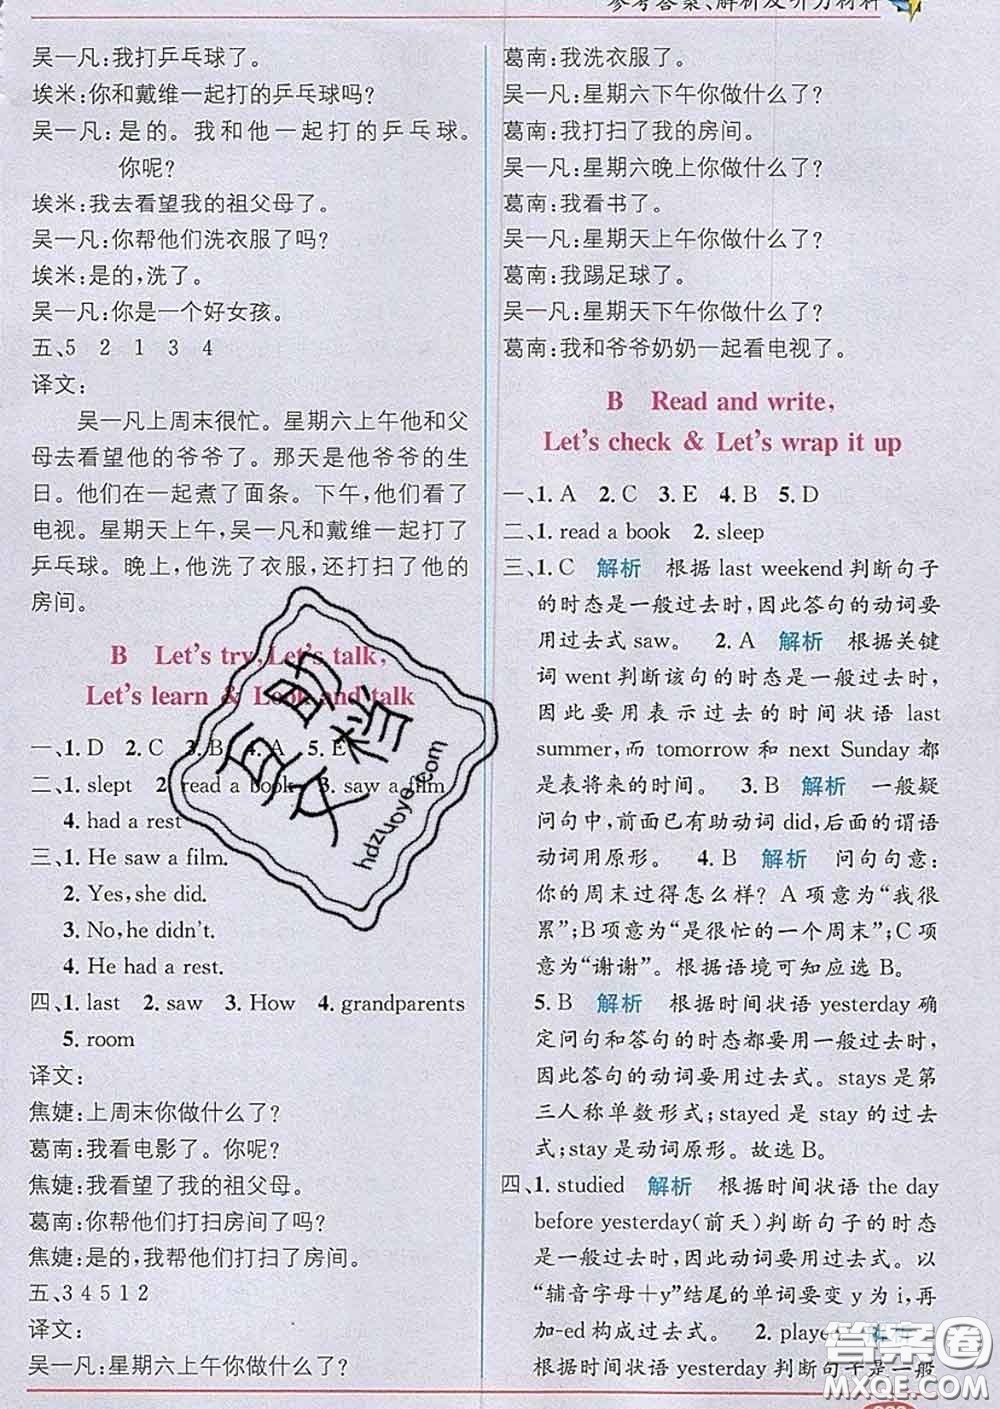 参考答案、解析及听力材料
吴一凡:我打乒乓球了。
埃米:你和戴维一起打的乒乓球吗?
吴一凡:是的。我和他一起打的乒乓球。
你呢?
埃米:我去看望我的祖父母了。
吴一凡:你帮他们洗衣服了吗?
埃米:是的,洗了。
吴一凡:你是一个好女孩。
五、5 2 1 3 4
译文:
吴一凡上周末很忙。星期六上午他和父
母去看望他的爷爷了。那天是他爷爷的生
日。他们在一起煮了面条。下午,他们看了
电视。星期天上午,吴一凡和戴维一起打了
乒乓球。晚上,他洗了衣服,还打扫了他的
房间。
B Let's try, Let's talk,
Let's learn & Look and talk
一、1. D 2. C 3. B 4. A 5. E
二、1. slept 2. read a book 3. saw a film
4. had a rest
三、1. He saw a film.
2. Yes, she did.
3. No, he didn't.
4. He had a rest.
四、1. last 2. saw 3. How 4. grandparents
5. room
译文:
焦婕:上周末你做什么了?
葛南:我看电影了。你呢?
焦婕:我看望了我的祖父母。
葛南:你帮他们打扫房间了吗?
焦婕:是的,我帮他们打扫了房间。
五、3 4 5 1 2
译文:
吴一凡:星期六上午你做什么了?
葛南:我洗衣服了。
吴一凡:星期六下午你做什么了?
葛南:我打扫了我的房间。
吴一凡:星期六晚上你做什么了?
葛南:我看书了。
吴一凡:星期天上午你做什么了?
葛南:我踢足球了。
吴一凡:星期天下午你做什么了?
葛南:我和爷爷奶奶一起看电视了。
B Read and write,
Let's check & Let's wrap it up
一、1. A 2. C 3. E 4. B 5. D
二、1. read a book 2. sleep
三、1. C 解析 根据 last weekend 判断句子
的时态是一般过去时,因此答句的动词要
用过去式 saw。 2. A 解析 根据关键
词 went 判断该句的时态是一般过去时,
因此要用表示过去的时间状语 last
summer,而 tomorrow 和 next Sunday 都
是表将来的时间。 3. B 解析 一般疑
问句中,前面已有助动词 did,后面的谓语
动词用原形。 4. B 解析 问句句意:
你的周末过得怎么样? A 项意为“我很
累”;B 项意为“是很忙的一个周末”;C 项
意为“谢谢”。根据语境可知应选 B。
5. B 解析 根据时间状语 yesterday 确
定问句和答句的时态都要用一般过去时,
因此答句的动词要用过去式。stays 是第
三人称单数形式;stayed 是 stay 的过去
式;stay 是动词原形。故选 B。
四、1. studied 解析 根据时间状语 the day
before yesterday(前天)判断句子的时态
是一般过去时,因此动词要用过去式。以
“辅音字母+y”结尾的单词要变 y 为 i,再
加-ed 构成过去式。 2. played 解析
根据时间状语 yesterday 判断句子是一般
互助文档
hdzuoye.com
答案圈
MXQE.COM